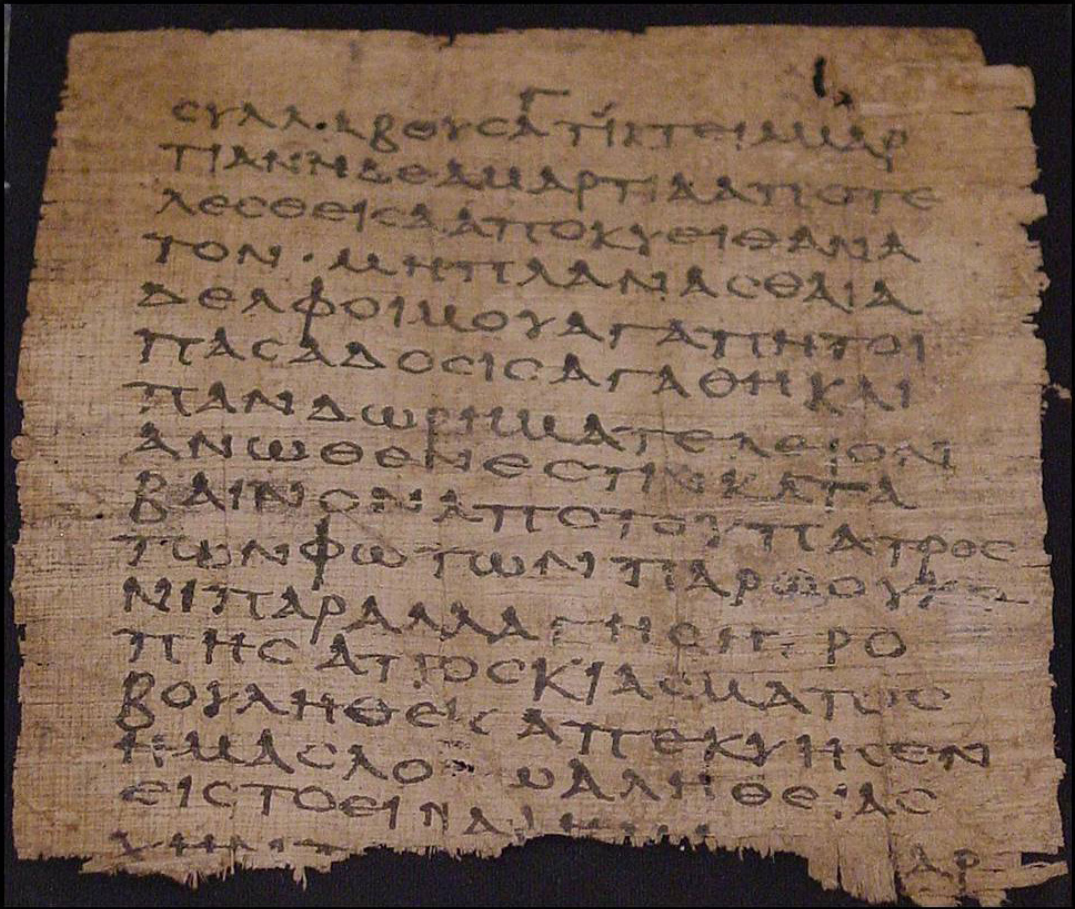 ϹΥΛΛΑΒΟΥϹΑΤΙΚΤΕΙΑΜΑΡ
ΤΙΑΝΗΔΕΑΜΑΡΤΙΑΑΠΟΤΕ
ΛΕϹΘΕΙϹΑΑΠΟΚΥΕΙΘΑΝΑ
ΤΟΝ·ΜΗΠΛΑΝΑϹΘΑΙΑ
ΔΕΛΦΟΙΜΟΥΑΓΑΠΗΤΟΙ
ΠΑϹΑΔΟϹΙϹΑΓΑΘΗΚΑΙ
ΠΑΝΔΩΡΗΜΑΤΕΛΕΙΟΝ
ΑΝΩΘΕΝΕϹΤΙΝΚΑΤΑ
ΒΑΙΝΟΝΑΠΟΤΟΥΠΑΤΡΟϹ
ΤΩΝΦΩΤΩΝΠΑΡΩΟΥΚΕ
ΝΙΠΑΡΑΛΛΑΓΗϹΗΤΡΟ
ΠΗϹΑΠΟϹΚΙΑϹΜΑΤΟϹ
ΒΟΥΛΗΘΕΙϹΑΠΕΚΥΗϹΕΝ
ΗΜΑϹΛΟΓΩΑΛΗΘΕΙΑϹ
ΕΙϹΤΟΕΙΝΑΙ